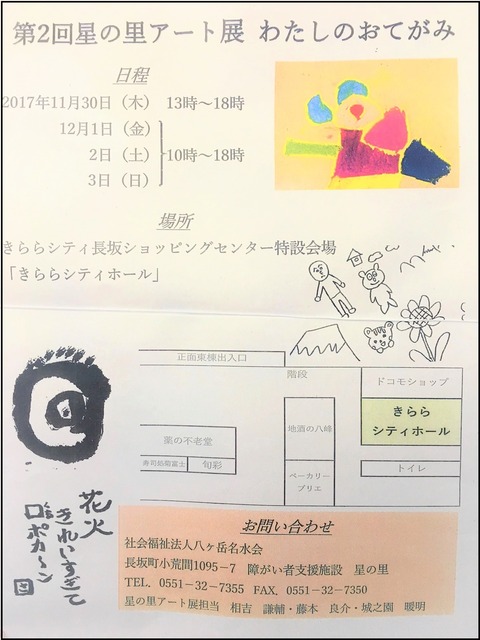 第2回星の里アート展 わたしのおてがみ
日程
2017年11月30日（木） 13時～18時
12月1日（金）
2日（土） 10時～18時
3日（日）
場所
きららシティ長坂ショッピングセンター特設会場
「きららシティホール」
正面東棟出入口
階段
ドコモショップ
きらら
シティホール
地酒の八峰
薬の不老堂
寿司処菊富士
旬彩
ベーカリー
ブリエ
トイレ
花火
きれいすぎて
口ポカ～ン
お問い合わせ
社会福祉法人八ヶ岳名水会
長坂町小荒間1095－7 障がい者支援施設 星の里
TEL. 0551－32－7355 FAX. 0551－32－7350
星の里アート展担当 相吉 謙輔・藤本 良介・城之園 暖明